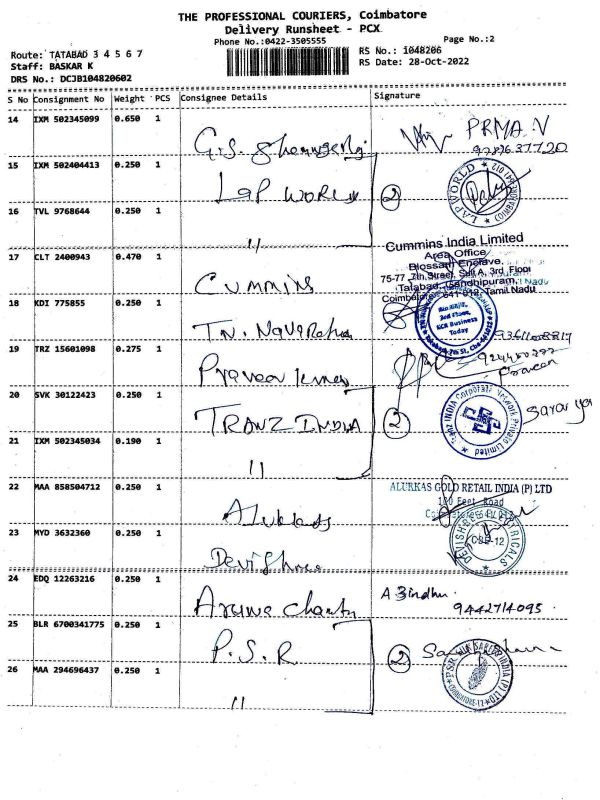 THE PROFESSIONAL COURIERS, Coimbatore
Delivery Runsheet - PCX
Phone No.:0422-3505555
Page No.:2
Route: TATABAD 3 4 5 6 7
RS No.: 1048206
Staff: BASKAR K
RS Date: 28-Oct-2022
DRS No.: DCJB104820602
S No Consignment No Weight PCS Consignee Details Signature
14 IXM 502345099 0.650 1
PRMA.V
15 IXM 502404413 0.250 1 LAP WORLD 2
LAP WORLD
16 TVL 9768644 0.250 1 11
17 CLT 2400943 0.470 1 CUMMINS
Cummins India Limited
Area Office
Blossam Enclave,
75-77, 7th Street, Suit A, 3rd Floor
Tatabad, Gandhipuram,
Coimbatore - 641 012, Tamil Nadu
18 KDI 775855 0.250 1 TN. Navaratna
3rd Floor,
KCR Business
Today
19 TRZ 15601098 0.275 1 Praveen Kumar
Praveen
20 SVK 30122423 0.250 1 TRANZ INDIA 2
Tranz INDIA Corporate Network Private Limited
21 IXM 502345034 0.190 1 11
22 MAA 858504712 0.250 1 Alukkas
ALURKAS GOLD RETAIL INDIA (P) LTD
100 Feet Road
23 MYD 3632360 0.250 1 Devishree
DEVISHREE ELECTRICALS
CBE-12
24 EDQ 12263216 0.250 1
A Bindhu
9442714095
25 BLR 6700341775 0.250 1 P.S.R 2
26 MAA 294696437 0.250 1 11